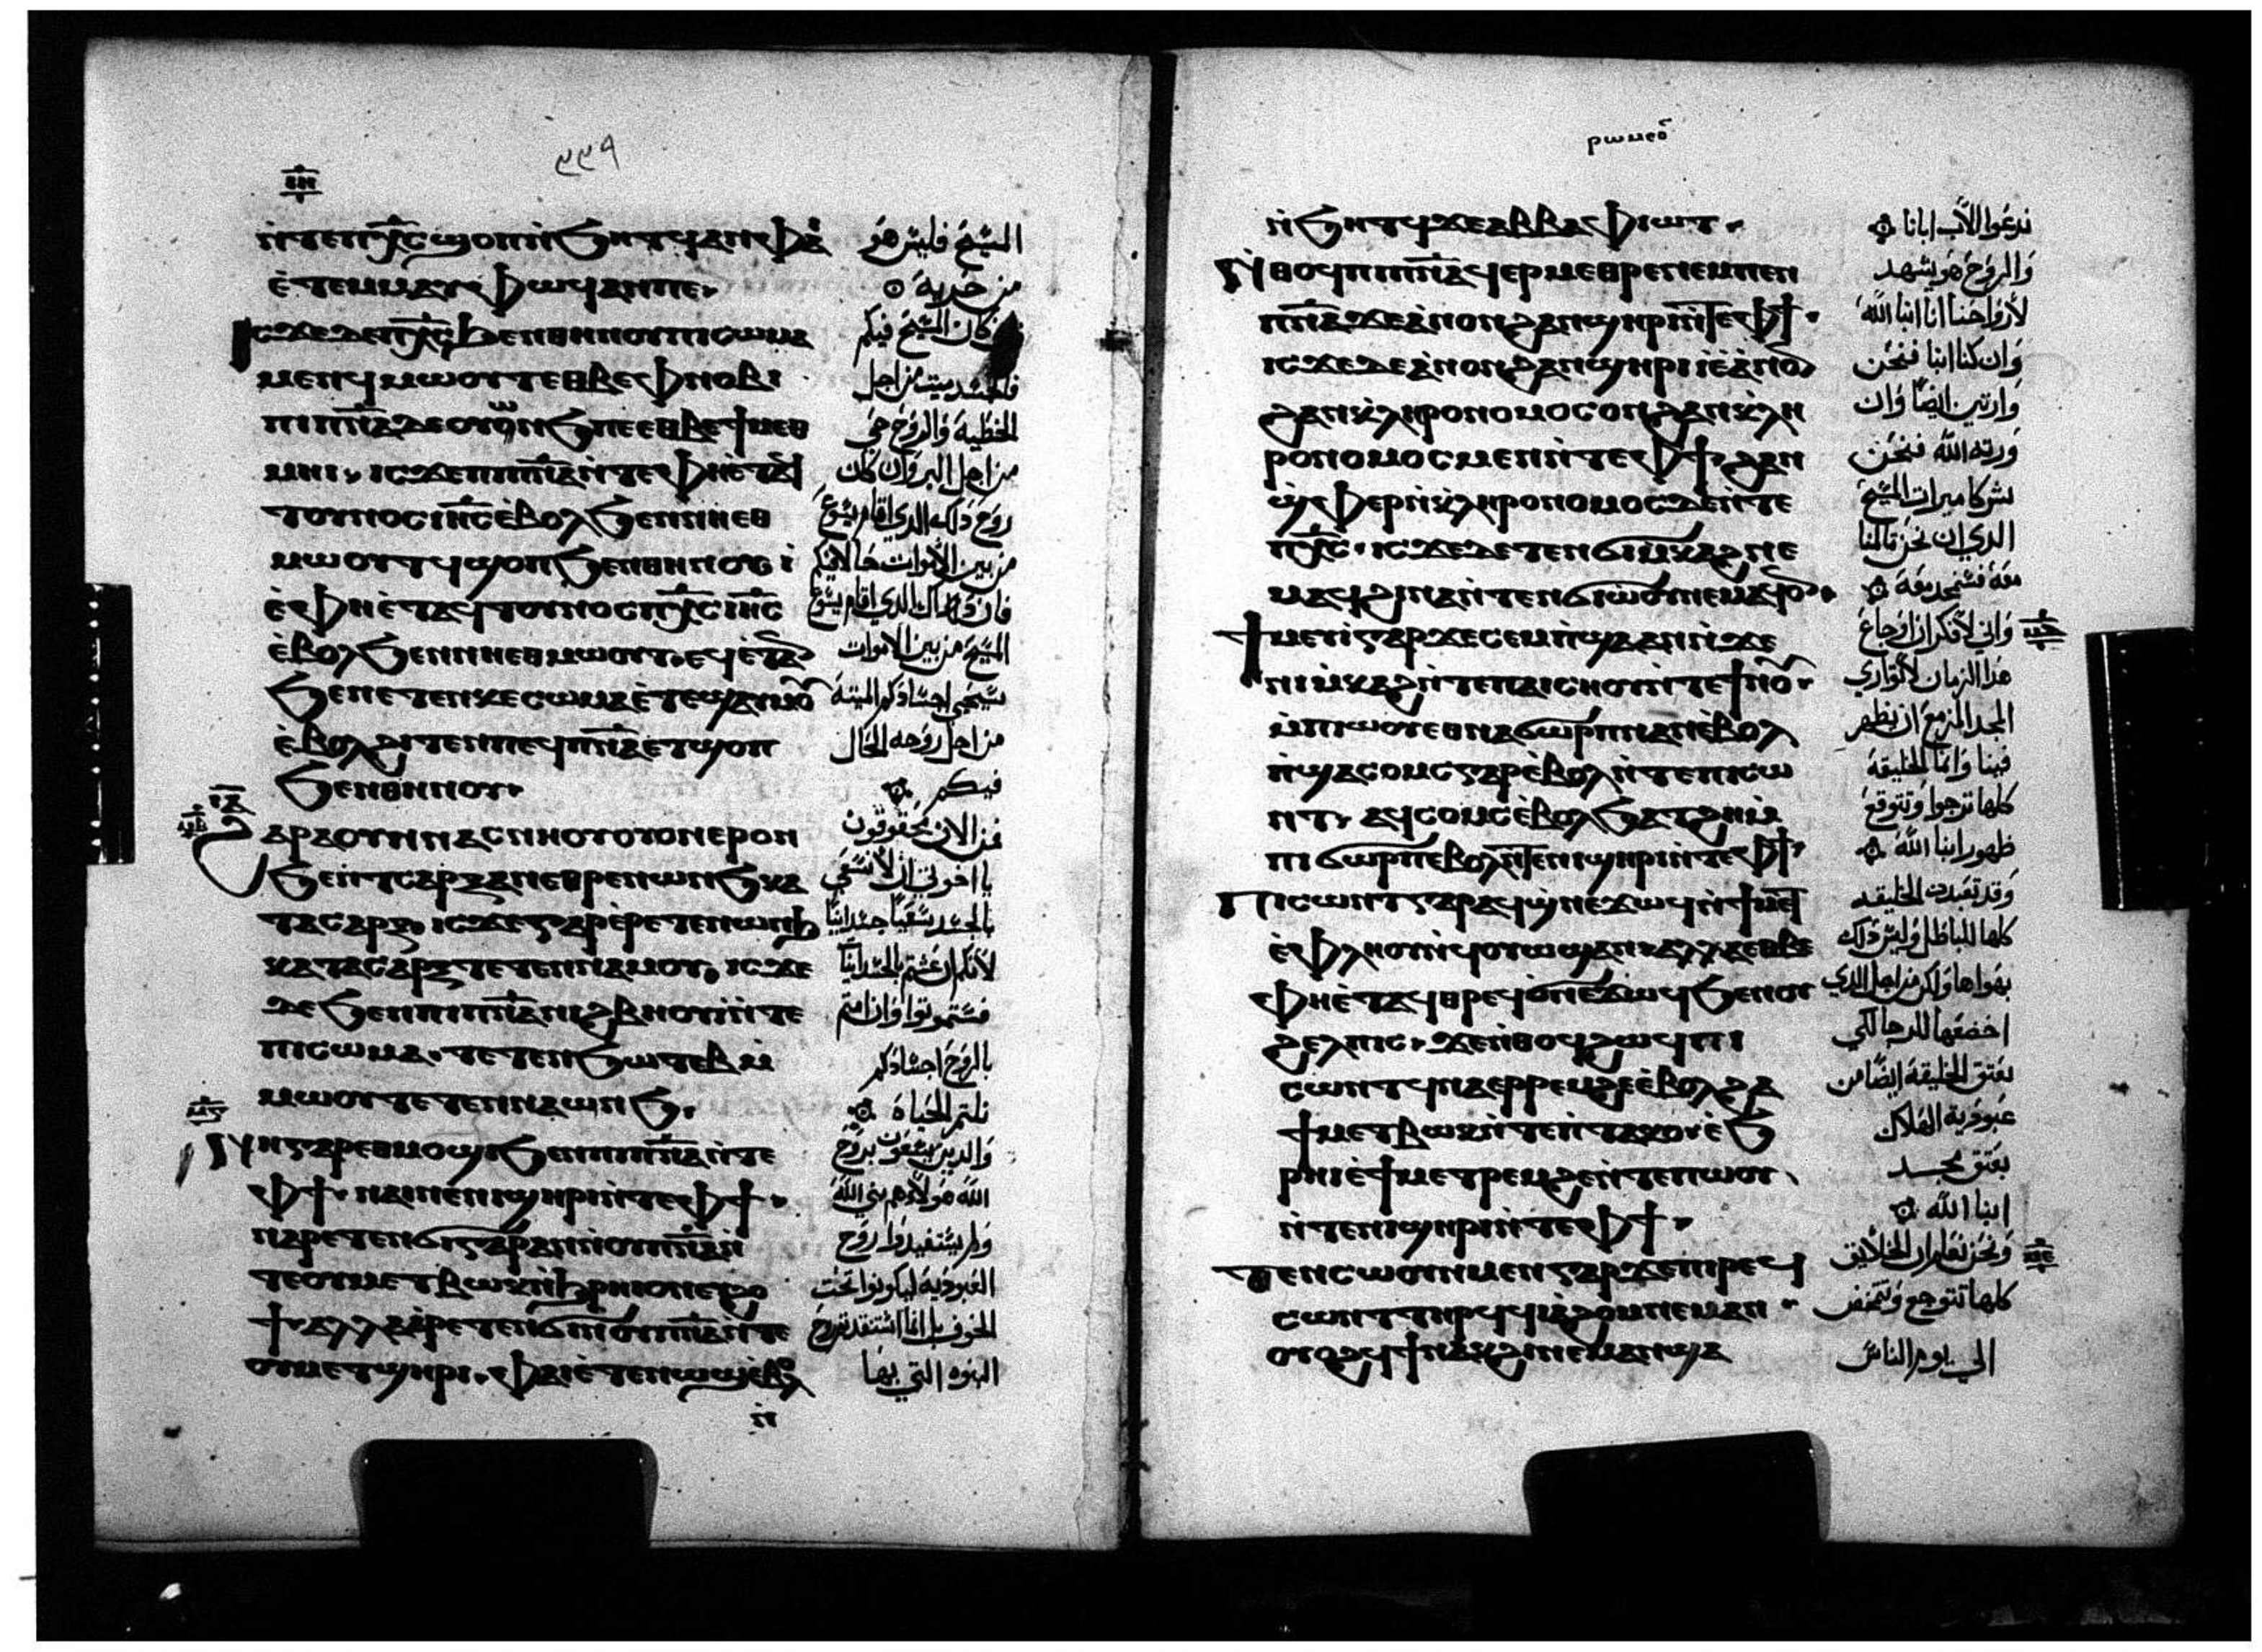 ٣٣٩
ⲛ̀ⲧⲉⲡⲭ̅ⲥ̅ϣⲟⲡⲛ̀ϧⲏⲧϥⲁⲛⲫⲁⲓ
ⲉ̀ⲧⲉⲙⲙⲁⲩⲫⲱϥⲁⲛⲡⲉ·
ⲓⲥϫⲉⲇⲉⲡⲭ̅ⲥ̅ϧⲉⲛⲑⲏⲛⲟⲩⲡⲓⲥⲱⲙⲁ
ⲙⲉⲛϥⲙⲱⲟⲩⲧⲉⲑⲃⲉⲫⲛⲟⲃⲓ
ⲡⲓⲡⲛ̅ⲁ̅ⲇⲉⲟⲩⲱⲛϧⲡⲉⲉⲑⲃⲉϯⲙⲉⲑ
ⲙⲏⲓ· ⲓⲥϫⲉⲡⲡⲛ̅ⲁ̅ⲛ̀ⲧⲉⲫⲏⲉ̀ⲧⲁϥ
ⲧⲟⲩⲛⲟⲥⲓⲏ̅ⲥ̅ⲉ̀ⲃⲟⲗϧⲉⲛⲛⲏⲉⲑ
ⲙⲱⲟⲩⲧϥϣⲟⲡϧⲉⲛⲑⲏⲛⲟⲩ ⲓ̀
ⲉ̀ⲫⲏⲉ̀ⲧⲁϥⲧⲟⲩⲛⲟⲥⲡⲭ̅ⲥ̅ⲓⲏ̅ⲥ̅
ⲉ̀ⲃⲟⲗϧⲉⲛⲛⲏⲉⲑⲙⲱⲟⲩⲧ·ⲉϥⲉ̀ⲧⲁⲛϧⲟ
ϧⲉⲛⲉⲧⲉⲛⲕⲉⲥⲱⲙⲁⲉ̀ⲧⲉϣⲁⲩⲙⲟⲩ
ⲉ̀ⲃⲟⲗϩⲓⲧⲉⲛⲡⲉϥⲡⲛ̅ⲁ̅ⲉⲧϣⲟⲡ
ϧⲉⲛⲑⲏⲛⲟⲩ·
ϩⲁⲣⲁⲟⲩⲛⲛⲁⲥⲛⲏⲟⲩⲟⲩⲟⲛⲉⲣⲟⲛ
ϧⲉⲛⲧⲥⲁⲣⲝⲁⲛⲉⲑⲣⲉⲛⲱⲛϧⲕⲁ
ⲧⲁⲥⲁⲣⲝ· ⲓⲥϫⲉⲅⲁⲣⲉ̀ⲣⲉⲧⲉⲛⲱⲛϧ
ⲕⲁⲧⲁⲥⲁⲣⲝⲧⲉⲧⲉⲛⲛⲁⲙⲟⲩ· ⲓⲥϫⲉ
ⲇⲉϧⲉⲛⲡⲓⲡⲛ̅ⲁ̅ⲛⲓϩⲃⲏⲟⲩⲓⲛ̀ⲧⲉ
ⲡⲓⲥⲱⲙⲁ·ⲧⲉⲧⲉⲛϧⲱⲧⲉⲃⲙ̀
ⲙⲱⲟⲩⲧⲉⲧⲉⲛⲛⲁⲱⲛϧ·
ⲛⲏⲅⲁⲣⲉⲑⲙⲟϣⲓϧⲉⲛⲡⲓⲡⲛ̅ⲁ̅ⲛ̀ⲧⲉ
ⲫϯ·ⲛⲁⲓⲛⲉⲛⲓϣⲏⲣⲓⲛ̀ⲧⲉⲫϯ·
ⲛⲁⲣⲉⲧⲉⲛϭⲓⲅⲁⲣⲁⲛⲛ̀ⲟⲩⲡⲛ̅ⲁ̅ⲛ̀
ⲧⲉⲟⲩⲙⲉⲧⲃⲱⲕⲛ̀ϧⲣⲏⲓⲟⲛⲉϩⲟ
ϯ·ⲁⲗⲗⲁⲁ̀ⲣⲉⲧⲉⲛϭⲓⲛ̀ⲟⲩⲡⲛ̅ⲁ̅ⲛ̀ⲧⲉ
ⲟⲩⲙⲉⲧϣⲏⲣⲓ·ⲫⲁⲓⲉ̀ⲧⲉⲛⲱϣⲉ̀ⲃⲟⲗ
ⲛ̀
المسيح فليس هو
من حزبه
كان المسيح فيكم
ميت من اجل
الخطية والروح حي
من اجل البر وان كان
روح ذلك الذي اقام يسوع
من بين الاموات حالا فيكم
الذي اقام يسوع
المسيح من بين الاموات
سيحيي اجسادكم الميتة
من اجل روحه الحال
فيكم
يا اخوتي ان لا نسعى
بالروح اجسادكم
نلتم الحياة
الله هولاء هم بني الله
البنوه التي بها
ⲣⲱⲙⲉⲟⲥ
ⲛ̀ϧⲏⲧϥϫⲉⲁⲃⲃⲁⲫⲓⲱⲧ·
ⲛ̀ⲑⲟϥⲡⲓⲡⲛ̅ⲁ̅ϥⲉⲣⲙⲉⲑⲣⲉⲛⲉⲙⲡⲉⲛ
ⲡⲛ̅ⲁ̅ϫⲉⲁ̀ⲛⲟⲛϩⲁⲛϣⲏⲣⲓⲛ̀ⲧⲉⲫϯ·
ⲓⲥϫⲉⲇⲉⲁ̀ⲛⲟⲛϩⲁⲛϣⲏⲣⲓⲓⲉⲁ̀ⲛⲟⲛ
ϩⲁⲛⲕ̀ⲗⲏⲣⲟⲛⲟⲙⲟⲥⲟⲛϩⲁⲛⲕ̀ⲗⲏ
ⲣⲟⲛⲟⲙⲟⲥⲙⲉⲛⲛ̀ⲧⲉⲫϯ·ϩⲁⲛ
ϣ̀ⲫⲉⲣⲛ̀ⲕ̀ⲗⲏⲣⲟⲛⲟⲙⲟⲥⲇⲉⲛ̀ⲧⲉ
ⲡⲭ̅ⲥ̅·ⲓⲥϫⲉⲇⲉⲧⲉⲛϭⲓⲙ̀ⲕⲁϩⲛⲉ
ⲙⲁϥϩⲓⲛⲁⲛ̀ⲧⲉⲛϭⲓⲱ̀ⲟⲩⲛⲉⲙⲁϥⲟⲛ·
ϯⲙⲉⲩⲓⲅⲁⲣϫⲉⲥⲉⲙ̀ⲡ̀ϣⲁⲁⲛⲛ̀ϫⲉ
ⲛⲓⲙ̀ⲕⲁϩⲛ̀ⲧⲉⲡⲁⲓⲥⲏⲟⲩⲛ̀ⲧⲉϯⲛⲟⲩ·
ⲙ̀ⲡⲓⲱⲟⲩⲉⲑⲛⲁϭⲱⲣⲡⲛⲁⲛⲉ̀ⲃⲟⲗ
ⲛ̀ϣⲁⲥⲟⲙⲥⲅⲁⲣⲉ̀ⲃⲟⲗⲛ̀ⲧⲉⲡⲓⲥⲱ
ⲛⲧ·ⲁϥⲥⲟⲙⲥⲉ̀ⲃⲟⲗϧⲁⲧϩⲏⲙ̀
ⲡⲓϭⲱⲣⲡⲉⲃⲟⲗⲛ̀ⲧⲉⲛⲓϣⲏⲣⲓⲛ̀ⲧⲉⲫϯ·
ⲡⲓⲥⲱⲛⲧⲅⲁⲣⲁϥϭ̀ⲛⲉϫⲱϥⲛ̀ϯⲙⲉⲧ
ⲉ̀ⲫⲗⲏⲟⲩⲛ̀ϥⲟⲩⲱϣⲁⲛ·ⲁⲗⲗⲁⲉⲑⲃⲉ
ⲫⲏⲉ̀ⲧⲁϥⲑⲣⲉϥϭ̀ⲛⲉϫⲱϥϧⲉⲛⲟⲩ
ϩⲉⲗⲡⲓⲥ·ϫⲉⲛ̀ⲑⲟϥϩⲱϥⲡⲓ
ⲥⲱⲛⲧϥⲛⲁⲉⲣⲣⲉⲙϩⲉⲉ̀ⲃⲟⲗϩⲁ
ϯⲙⲉⲧⲃⲱⲕⲛ̀ⲧⲉⲛ̀ⲧⲁⲕⲟ·ⲉ̀ϧ
ⲣⲏⲓⲉ̀ϯⲙⲉⲧⲣⲉⲙϩⲉⲛ̀ⲧⲉⲡⲱⲟⲩ
ⲛ̀ⲧⲉⲛⲓϣⲏⲣⲓⲛ̀ⲧⲉⲫϯ·
ⲧⲉⲛⲥⲱⲟⲩⲛⲙⲉⲛⲅⲁⲣϫⲉⲡⲓⲣⲉϥ
ⲥⲱⲛⲧⲧⲏⲣϥϥⲓⲁ̀ϩⲟⲙⲛⲉⲙⲁⲛ·
ⲟⲩⲟϩϥϯⲛⲁⲕϩⲓⲛⲉⲙⲁⲛϣⲁ
ندعوا الاب ابانا
والروح هو يشهد
لارواحنا اننا ابنا الله
وان كنا ابنا فنحن
وارثين ايضا وان
ورثه الله فنحن
شركا ميرات المسيح
الذي ان نحن تالمنا
معه فسنمجد معه
واني لافكر ان اوجاع
هذا الزمان لا توازي
المجد المزمع ان يظهر
فينا وانما الخليقة
كلها ترجوا وتتوقع
ظهور ابنا الله
وقد تعبدت الخليقه
كلها للباطل وليس ذلك
بهواها ولكن من اجل الذي
اخضعها للرجا لكي
تعتق الخليقة ايضا من
عبودية الهلاك
بعتق مجد
ابنا الله
ونحن نعلم ان الخلايق
كلها تتوجع وتتمخض
الي يوم الناس